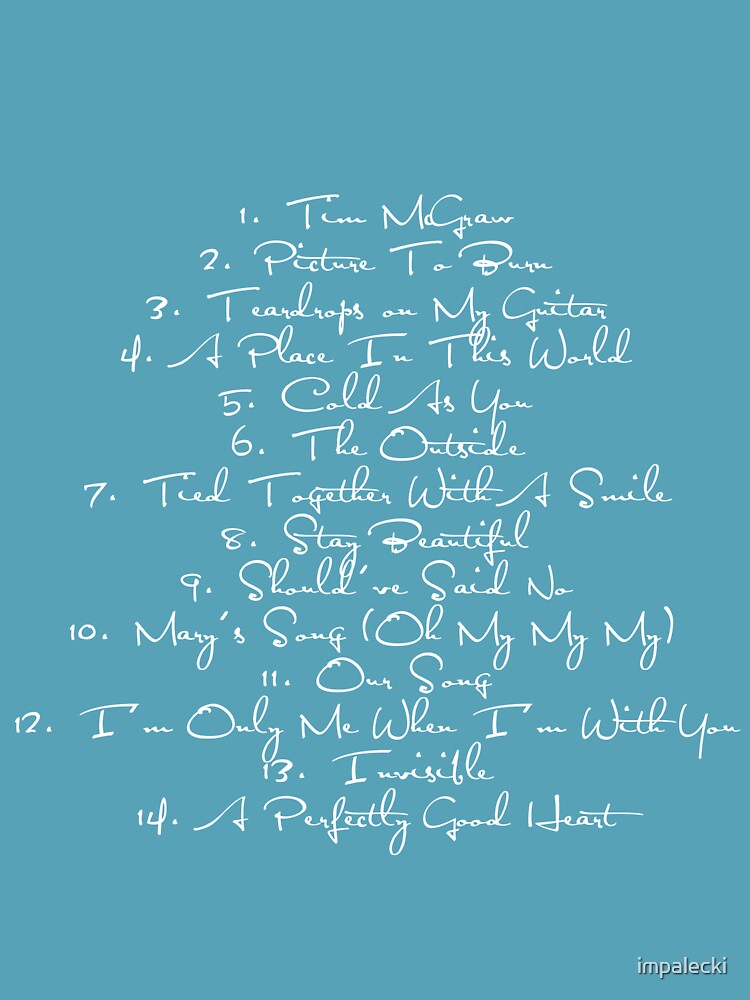 1. Tim McGraw
2. Picture To Burn
3. Teardrops on My Guitar
4. A Place In This World
5. Cold As You
6. The Outside
7. Tied Together With A Smile
8. Stay Beautiful
9. Should've Said No
10. Mary's Song (Oh My My My)
11. Our Song
12. I'm Only Me When I'm With You
13. Invisible
14. A Perfectly Good Heart
impalecki